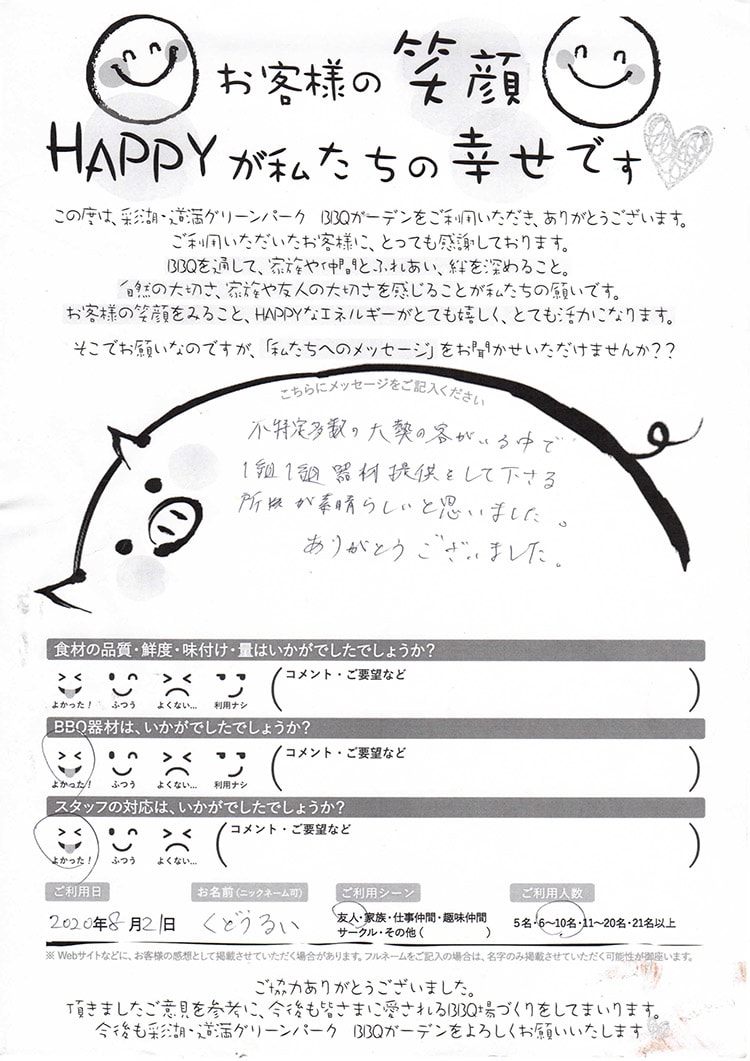 お客様の笑顔
HAPPYが私たちの幸せです
この度は、彩湖・道満グリーンパーク BBQガーデンをご利用いただき、ありがとうございます。
ご利用いただいたお客様に、とっても感謝しております。
BBQを通して、家族や仲間とふれあい、絆を深めること。
自然の大切さ、家族や友人の大切さを感じることが私たちの願いです。
お客様の笑顔をみること、HAPPYなエネルギーがとても嬉しく、とても活力になります。
そこでお願いなのですが、「私たちへのメッセージ」をお聞かせいただけませんか??
こちらにメッセージをご記入ください
不特定多数の大勢の客がいる中で
1組1組器材提供をして下さる
所が素晴らしいと思いました。
ありがとうございました。
食材の品質・鮮度・味付け・量はいかがでしたでしょうか?
コメント・ご要望など
よかった! ふつう よくない… 利用ナシ
BBQ器材は、いかがでしたでしょうか?
コメント・ご要望など
よかった! ふつう よくない… 利用ナシ
スタッフの対応は、いかがでしたでしょうか?
コメント・ご要望など
よかった! ふつう よくない…
ご利用日 お名前(ニックネーム可) ご利用シーン ご利用人数
2020年8月21日 くどうるい 友人・家族・仕事仲間・趣味仲間 5名・6〜10名・11〜20名・21名以上
サークル・その他( )
※ Webサイトなどに、お客様の感想として掲載させていただく場合があります。フルネームをご記入の場合は、名字のみ掲載させていただく可能性が御座います。
ご協力ありがとうございました。
頂きましたご意見を参考に、今後も皆さまに愛されるBBQ場づくりをしてまいります。
今後も彩湖・道満グリーンパーク BBQガーデンをよろしくお願いいたします